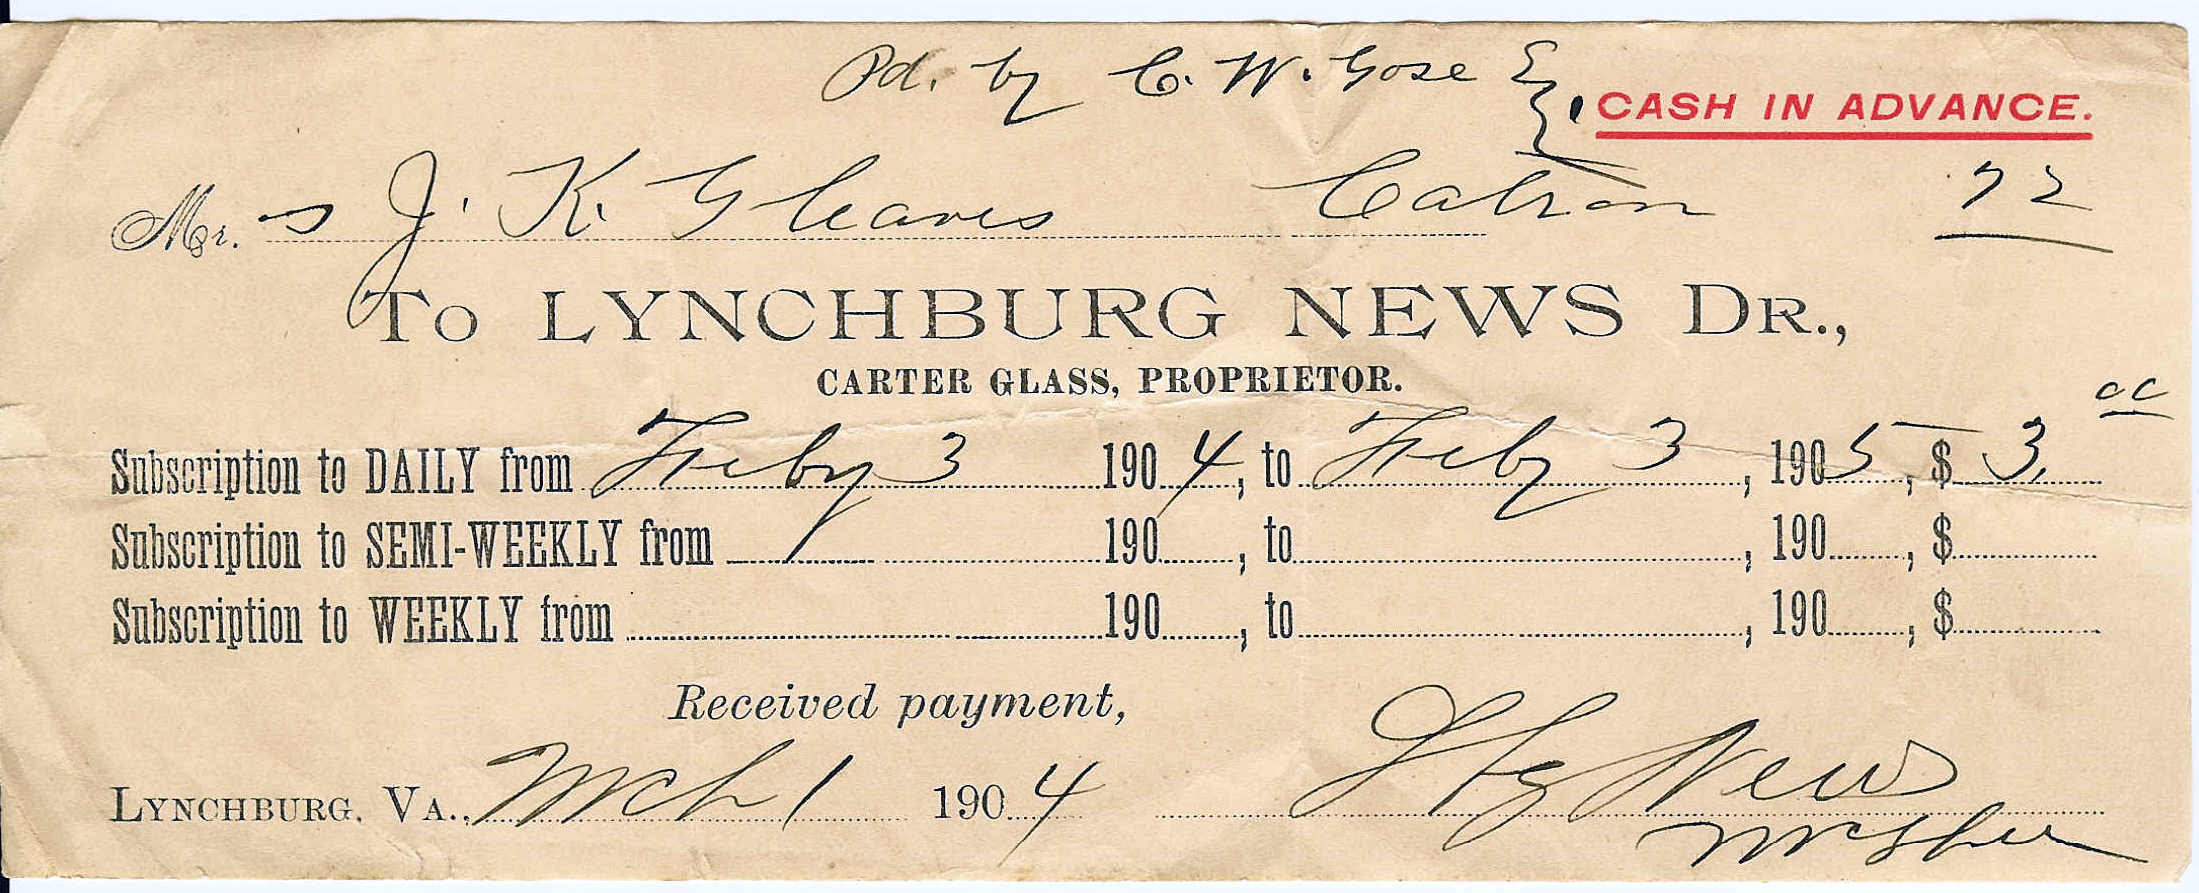 Pd. by C. W. Gose Esq.
CASH IN ADVANCE.
Mr.s J. K. Gleaves Catron 72
To LYNCHBURG NEWS DR.,
CARTER GLASS, PROPRIETOR.
Subscription to DAILY from Feby 3 1904, to Feby 3, 1905, $ 3.00
Subscription to SEMI-WEEKLY from 190, to , 190 , $
Subscription to WEEKLY from 190, to , 190 , $
Received payment,
LYNCHBURG, VA., Mch 1 1904 News